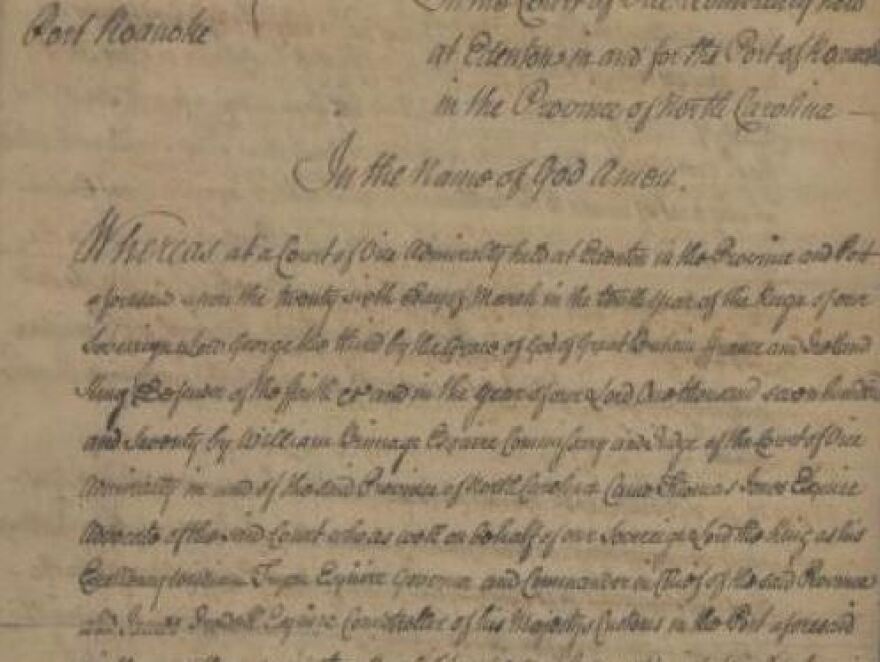 Port Roanoke
In the Court of Vice Admiralty held
at Edenton in and for the Port of Roanoke
in the Province of North Carolina
In the Name of God Amen.
Whereas at a Court of Vice Admiralty held at Edenton in the Province and Port
aforesaid upon the twenty sixth Day of March in the tenth Year of the Reign of our
Sovereign Lord George the third by the Grace of God of Great Britain France and Ireland
King Defender of the faith &c and in the Year of our Lord One thousand seven hundred
and Seventy by William Brimage Esquire Commissary and Judge of the Court of Vice
Admiralty in and of the said Province of North Carolina Came Thomas Jones Esquire
Advocate of the said Court who as well on behalf of our Sovereign Lord the King as his
Excellency William Tryon Esquire Governor and Commander in Chief of the said Province
and James Iredell Esquire Comptroller of his Majestys Customs in the Port aforesaid